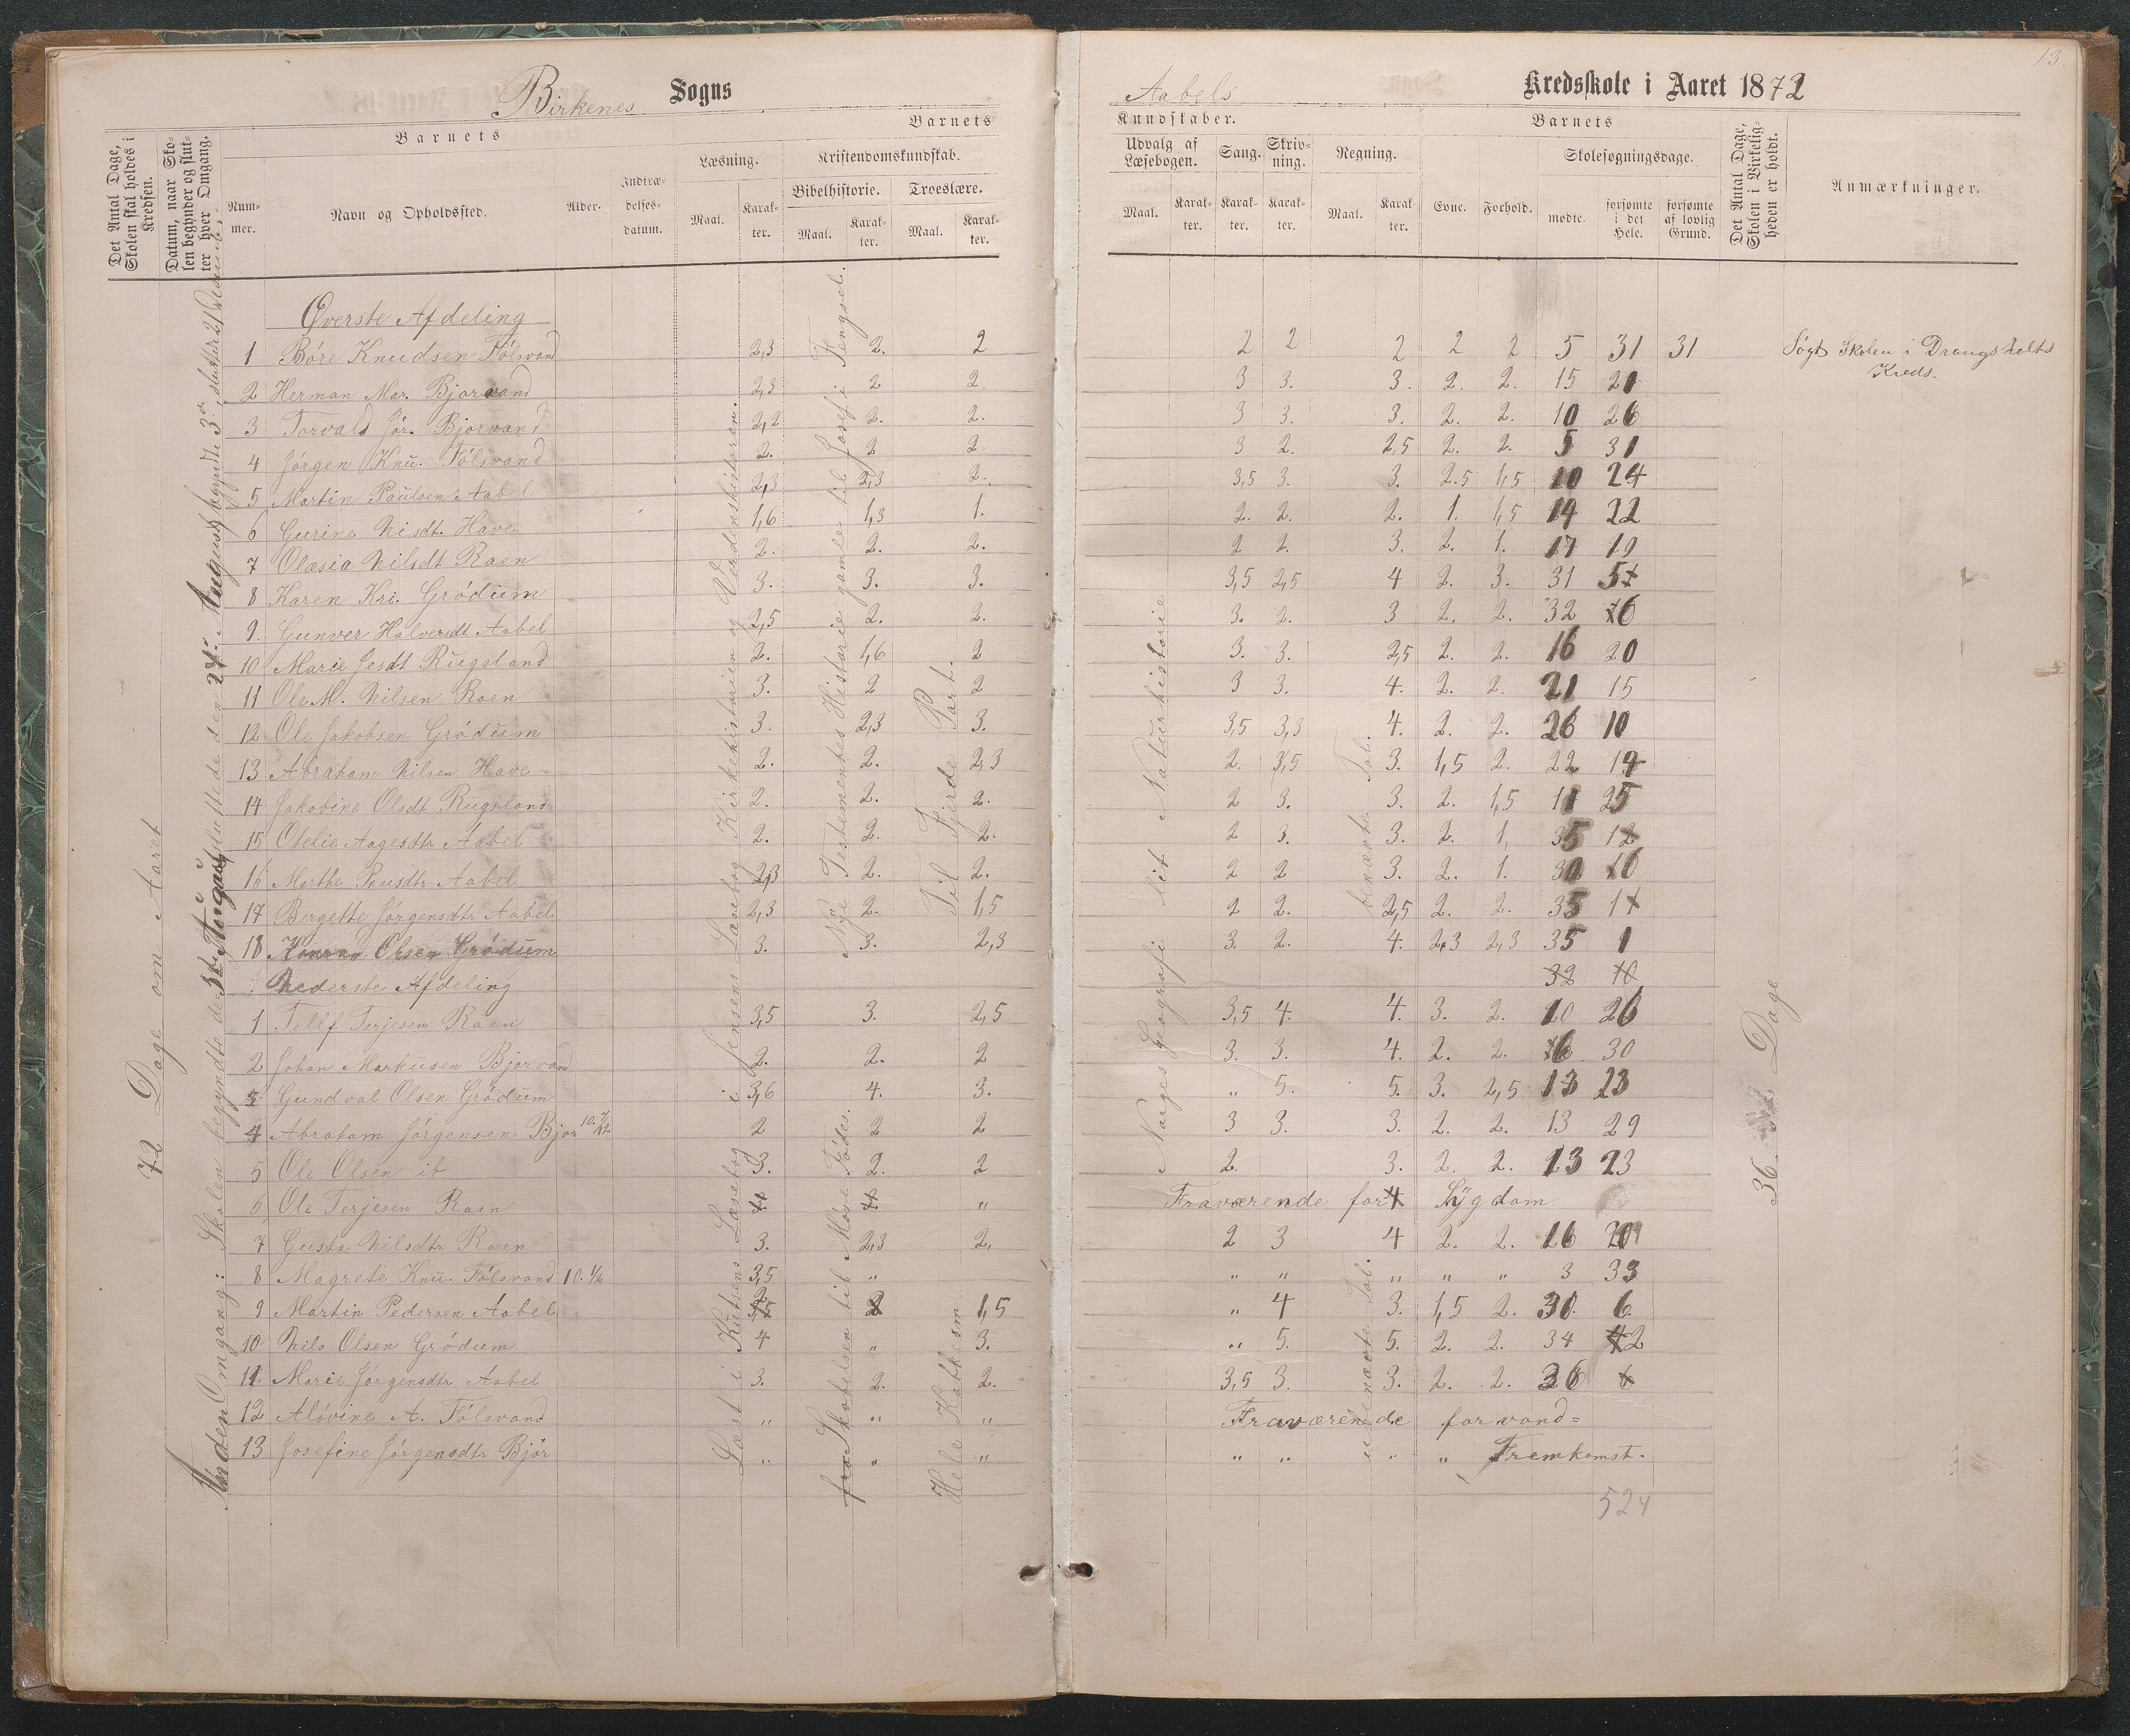 13
Birkenes Sogns
Aabels Kredsskole i Aaret 1872
Det Antal Dage, Skolen skal holdes i Kredsen.
Datum, naar Skolen begynder og slutter hver Omgang.
Barnets
Nummer.
Navn og Opholdssted.
Alder.
Indtrædelsesdatum.
Barnets
Læsning.
Maal.
Karakter.
Kristendomskundskab.
Bibelhistorie.
Maal.
Karakter.
Troeslære.
Maal.
Karakter.
Kundskaber.
Udvalg af Læsebogen.
Maal.
Karakter.
Sang.
Karakter.
Skrivning.
Karakter.
Regning.
Maal.
Karakter.
Barnets
Evne.
Forhold.
Skolesøgningsdage.
mødte.
forsømte i det Hele.
forsømte af lovlig Grund.
Det Antal Dage, Skolen i Virkeligheden er holdt.
Anmærkninger.
72 Dage om Aaret
Anden Omgang: Skolen begyndte den
sluttede den 24.
i Jensens Læsebog Kirkehistorien og Verdenshistorien.
Nye Testementes Historie gamle til Josef i Fengsel.
Til Fjerde Part.
Norges Geografi lit Naturhistorie
benævnte Tal.
36 Dage
Øverste Afdeling
1 Bóre Knudsen Fólsvand 2,3 2. 2 2 2 2 2 2 5 31 31 Sógt Skolen i Drangsholts
Kreds.
2 Herman Mar. Bjorvand 2,3 2 2. 3 3. 3. 2. 2. 15 21
3 Torvald Jór. Bjorvand 2,2 2. 2. 3 3. 3. 2. 2. 10 26
4 Jórgen Knu. Fólsvand 2. 2 2. 3 2. 2,5 2. 2. 5 31
5 Martin Paulsen Aabel 2,3 2,3 2. 3,5 3. 3. 2.5 1,5 10 24
6 Gurine Nisdt. Have 1,6 1,3 1. 2. 2. 2. 1. 1,5 14 22
7 Olæsia Nilsdt Raen 2. 2. 2. 2 2. 3. 2. 1. 17 19
8 Karen Kri. Gródum 3. 3. 3. 3,5 2,5 4 2. 3. 31 5
9. Gunver Halversdt Aabel 2,5 2. 2. 3. 2. 3 2. 2. 32
10 Marie Jesdt Rugsland 2. 1,6 2 3. 3. 2,5 2. 2. 16 20
11 Ole M. Nilsen Raen 3. 2 2 3 3. 4. 2. 2. 21 15
12 Ole Jakobsen Gródum 3. 2,3 3. 3,5 3,3 4. 2. 2. 26 10
13 Abraham Nilsen Have 2. 2. 2,3 2. 3,5 3. 1,5 2. 22 14
14 Jakobine Olsdt Rugsland 2. 2. 2. 2 3. 3. 2. 1,5 11 25
15 Otelie Aagesdtr Aabel 2. 2. 2. 2 3. 3. 2. 1, 35
16 Marthe Pausdtr Aabel 2,3 2. 2. 2 2 3. 2. 1.
17 Bergette Jórgensdtr Aabel 2,3 2. 1,5 2 2. 2,5 2. 2. 35 1
18 Konrad Olsen Gródum 3. 3. 2,3 3. 2. 4. 2,3 2,3 35 1
Nederste Afdeling 32 10
1 Tellf Terjesen Raen 3,5 3. 2,5 3,5 4. 4. 3. 2. 10 26
2 Johan Markusen Bjorvand 2. 2. 2 3. 3. 4. 2. 2. 6 30
3 Gundval Olsen Gródum 3,6 4. 3. " 5. 5. 3. 2,5 13 23
4 Abraham Jórgensen Bjor 2 2 2 3 3. 3. 2. 2. 13 29
5 Ole Olsen ib 3. 2. 2 2. 3. 2. 2. 13 23
6 Ole Terjesen Raen 4 4 " Fraværende for Sygdom
7 Gusta Nilsdtr Raen 3. 2,3 2. 2 3 4 2. 2. 16 20
8 Magrete Knu. Fólsvand 10. ½ 3,5 " " " " " " 3 33
9 Martin Pedersen Aabel 2 1,5 " 4 3. 1,5 2. 30. 6
10 Nils Olsen Gródum 4 " 3. " 5. 5. 2. 2. 34 2
11 Marie Jórgensdtr Aabel 3. 2. 2. 3,5 3. 3. 2. 2. 36
12 Alóvine A. Fólsvand " " " Fraværende for vand=
13 Josefine Jórgensdtr Bjór " " " " " " " Fremkomst.
524
Læst i Knutsens Læsebog
fra Skabelsen til Mose Fódes.
Hele Katkesm
ubenævte Tal.